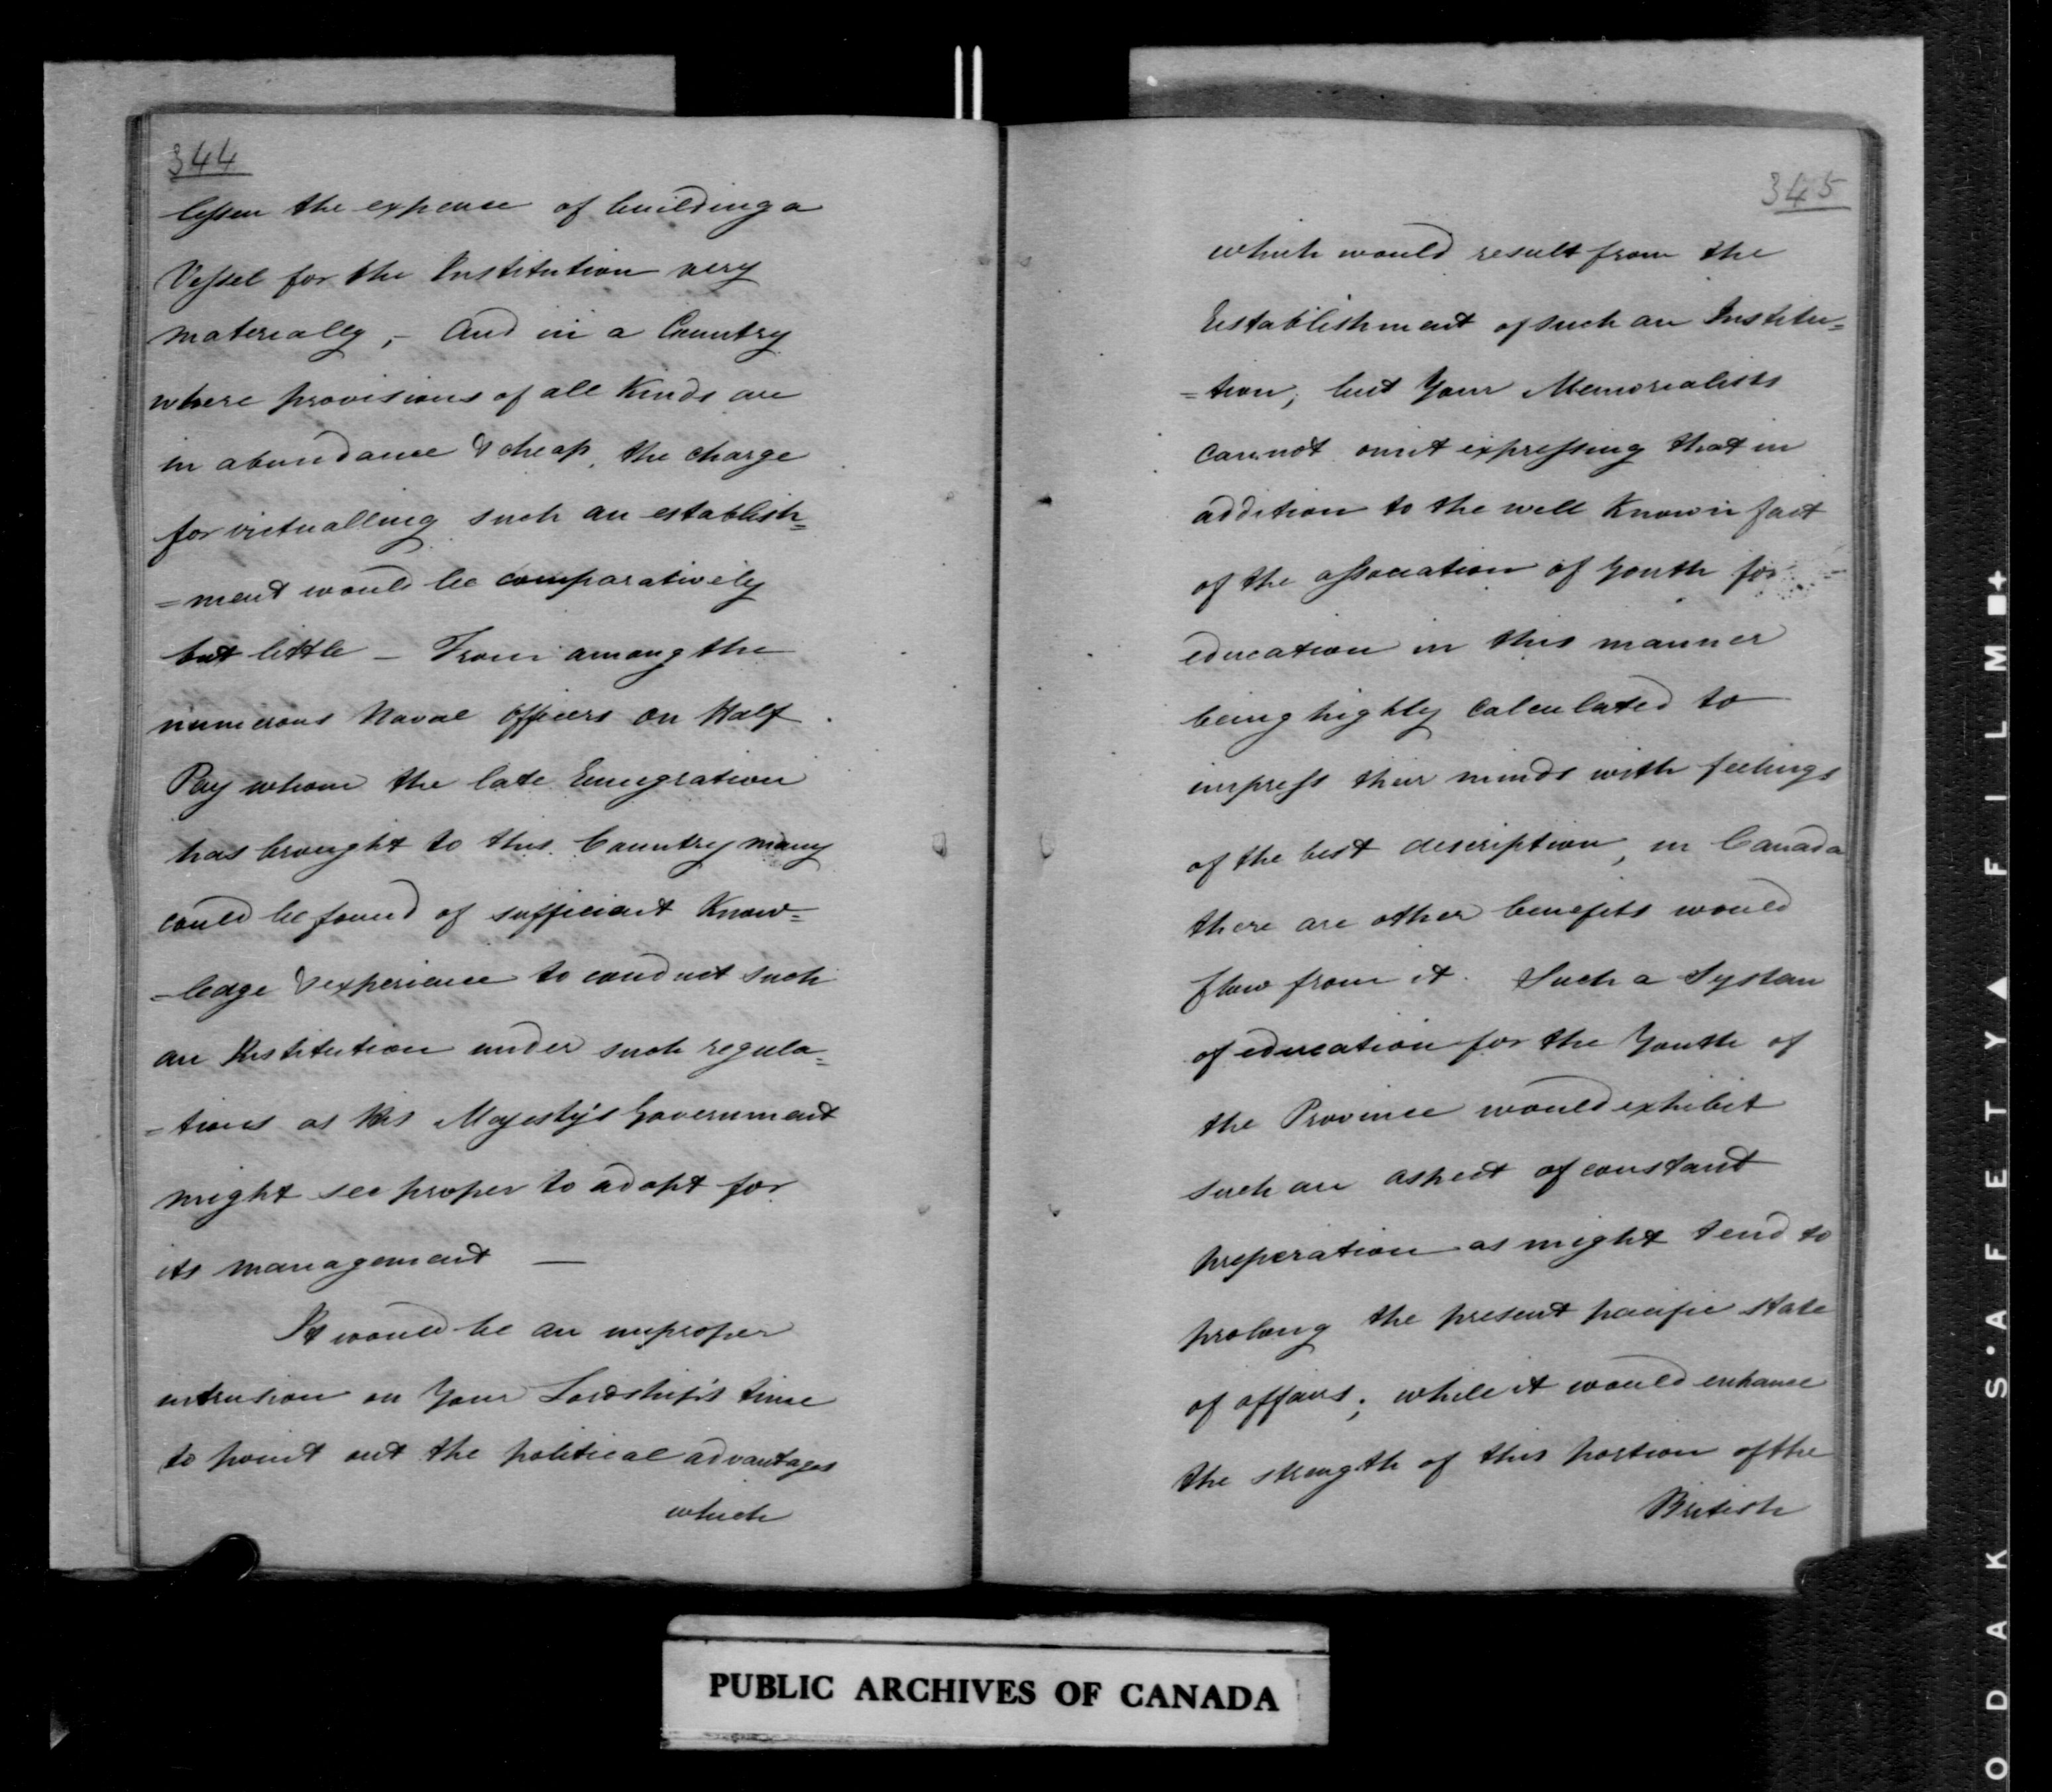 344
lessen the expense of building a
Vessel for the Institution very
materially, – And in a Country
where provisions of all Kinds are
in abundance & cheap, the charge
for victualling such an establish=
=ment would be comparatively
but little – From among the
numerous Naval Officers on Half
Pay whom the late Emigration
has brought to this Country many
could be found of sufficient Know=
=ledge & experience to conduct such
an Institution under such regula=
=tions as His Majesty's Government
might see proper to adopt for
its management —
It would be an improper
intrusion on Your Lordship's time
to point out the political advantages
which
345
which would result from the
Establishment of such an Institu=
=tion; but Your Memorialists
cannot omit expressing that in
addition to the well Known fact
of the association of Youth for
education in this manner
being highly calculated to
impress their minds with feelings
of the best description, in Canada
there are other benefits would
flow from it. Such a System
of education for the Youth of
the Province would exhibit
such an aspect of constant
preperation as might tend to
prolong the present pacific state
of affairs; while it would enhance
the strength of this portion of the
British
PUBLIC ARCHIVES OF CANADA
ODAK S'AFETY▲FILM■+